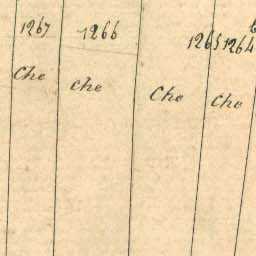 1267 1266 1265 1264
Che che Che Che